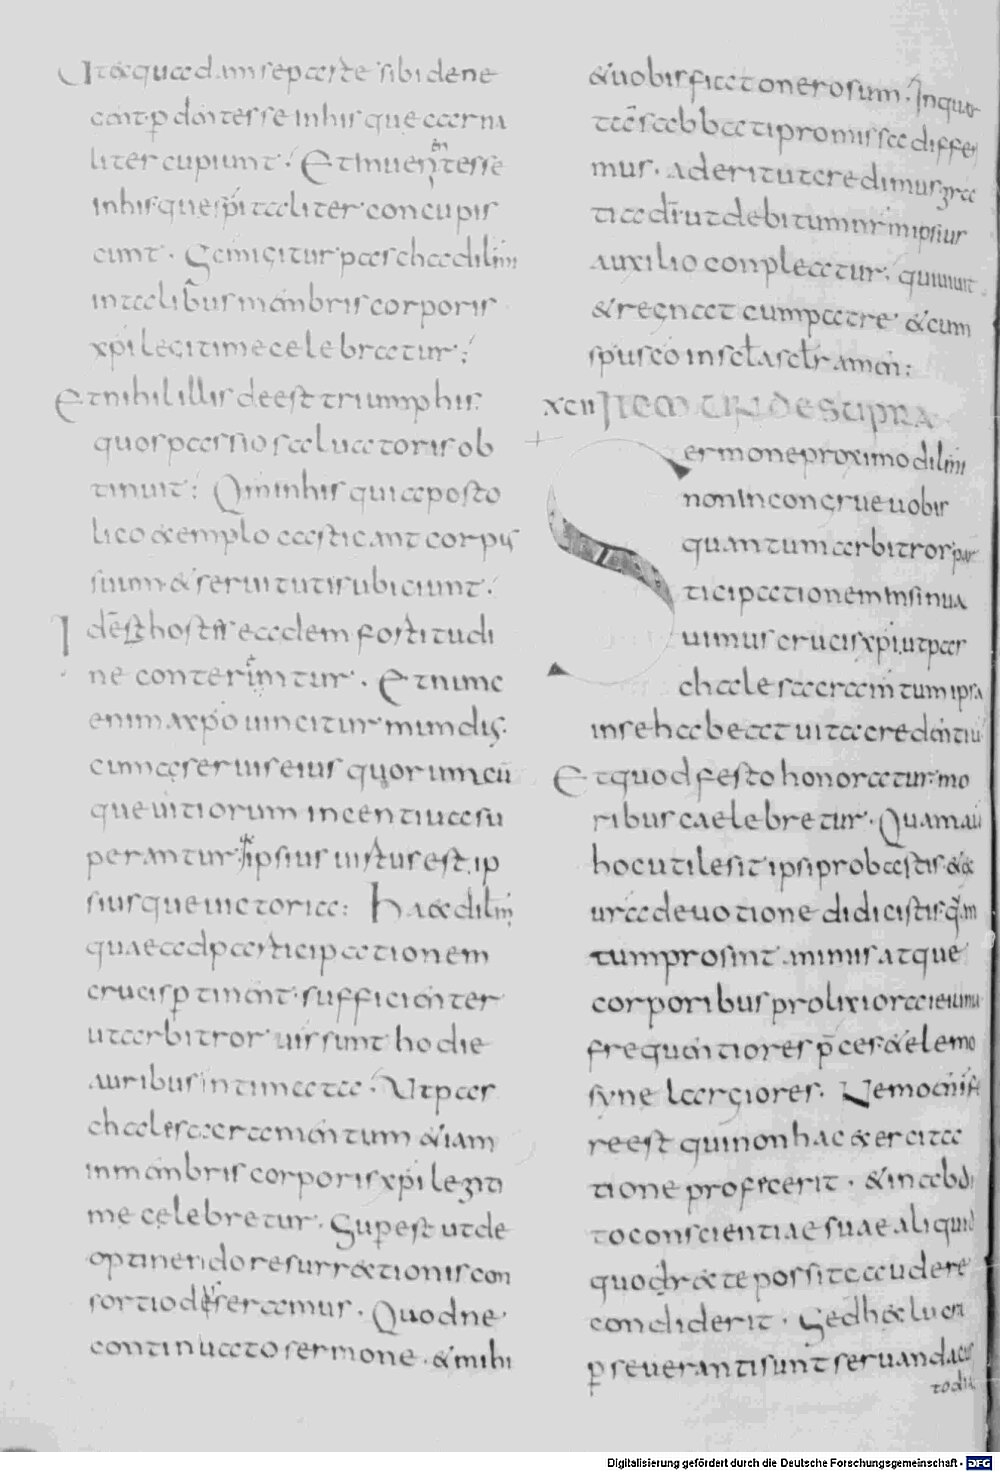 Ut & quadam separte sibi dene
gant p dontesse inhis que carna
liter cupiunt. Et inuentesse
inhis que spitaliter concupis
cunt. Geruigitur pascha dilmi
intalibus mambris corporis
xpi legitime celebratur;
Et nihil illis deest triumphis
quos passio saluatoris ob
tinuit; Qm inhis qui aposto
lico exemplo castigant corpus
suum & seruituti subiciunt.
Idest hostis eadem fortitudi
ne conteruntur. Et nunc
enim axpo uincitur mundus
cum quorumcu
que uitiorum incentiua su
perantur. ipsius uirtus est ip
siusque uictoria: Haec dilmi
quae ad participationem
crucis ptinent sufficienter
ut arbitror uis sunt hodie
auribus intimata. Ut pas
chale sacramentum &iam
inmembris corporis xpi legiti
me celebretur. Supest ut de
optinendo resurrectionis con
sortio disseramus. Quod ne
continuato sermone & mihi
& uobis fiat onerosum. Inquar
ta sabbati promissa diffe
mus. Aderit ut credimus gra
tia di ut debitum nrm ipsius
auxilio conpleatur. qui uiuit
& regnat cum patre & cum
spu sco in scla sclr amen:
XCII ITEM UNDE SUPRA
Sermone proximo dilmi
non incongrue uobis
quantum arbitror par
ticipationem insinua
uimus crucis xpi ut pas
chale sacramentum ipsa
inse habeat uita credentiu
Et quod festo honoratur mo
ribus caelebretur. Quam au
hoc utile sit ipsi probastis & &
ura deuotione didicistis qu
tum prosint animis atque
corporibus prolixiora ieiuniu
frequentiores preces & elemo
syne largiores. Nemo enim fe
re est qui non hac exercita
tione profecerit. & in abdi
to conscientiae suae aliquid
quod r&te possit gaudere
condiderit. Sed haec lucra
pseuerantis sunt seruanda cus
todia